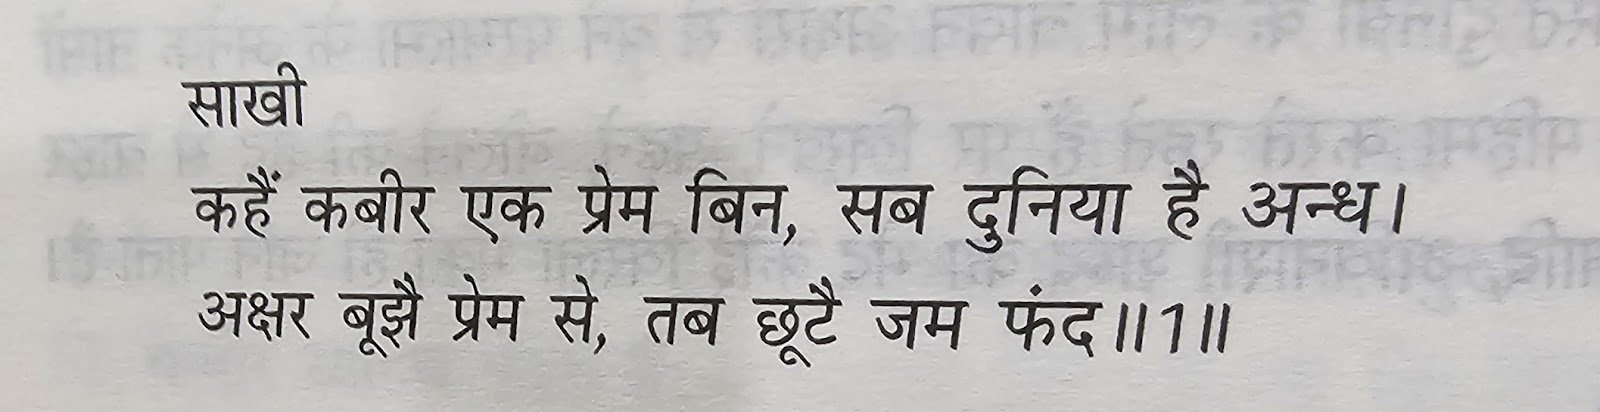 साखी
कहैं कबीर एक प्रेम बिन, सब दुनिया है अन्ध।
अक्षर बूझै प्रेम से, तब छूटै जम फंद॥1॥